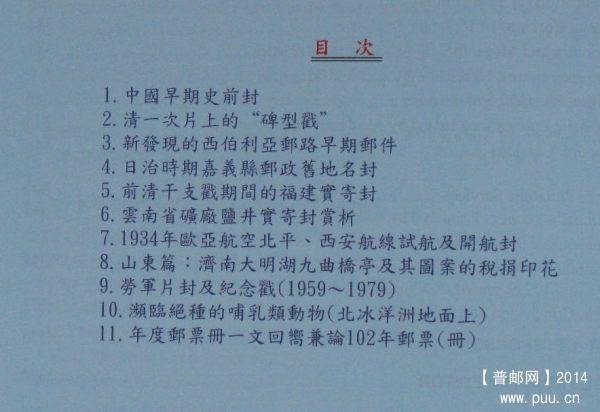 目 次
1. 中國早期史前封
2. 清一次片上的“碑型戳”
3. 新發現的西伯利亞郵路早期郵件
4. 日治時期嘉義縣郵政舊地名封
5. 前清干支戳期間的福建實寄封
6. 雲南省礦廠鹽井實寄封賞析
7. 1934年歐亞航空北平、西安航線試航及開航封
8. 山東篇：濟南大明湖九曲橋亭及其圖案的稅捐印花
9. 勞軍片封及紀念戳(1959～1979)
10. 瀕臨絕種的哺乳類動物(北冰洋洲地面上)
11. 年度郵票冊一文回嚮兼論102年郵票(冊)
【普邮网】2014
www.puu.cn